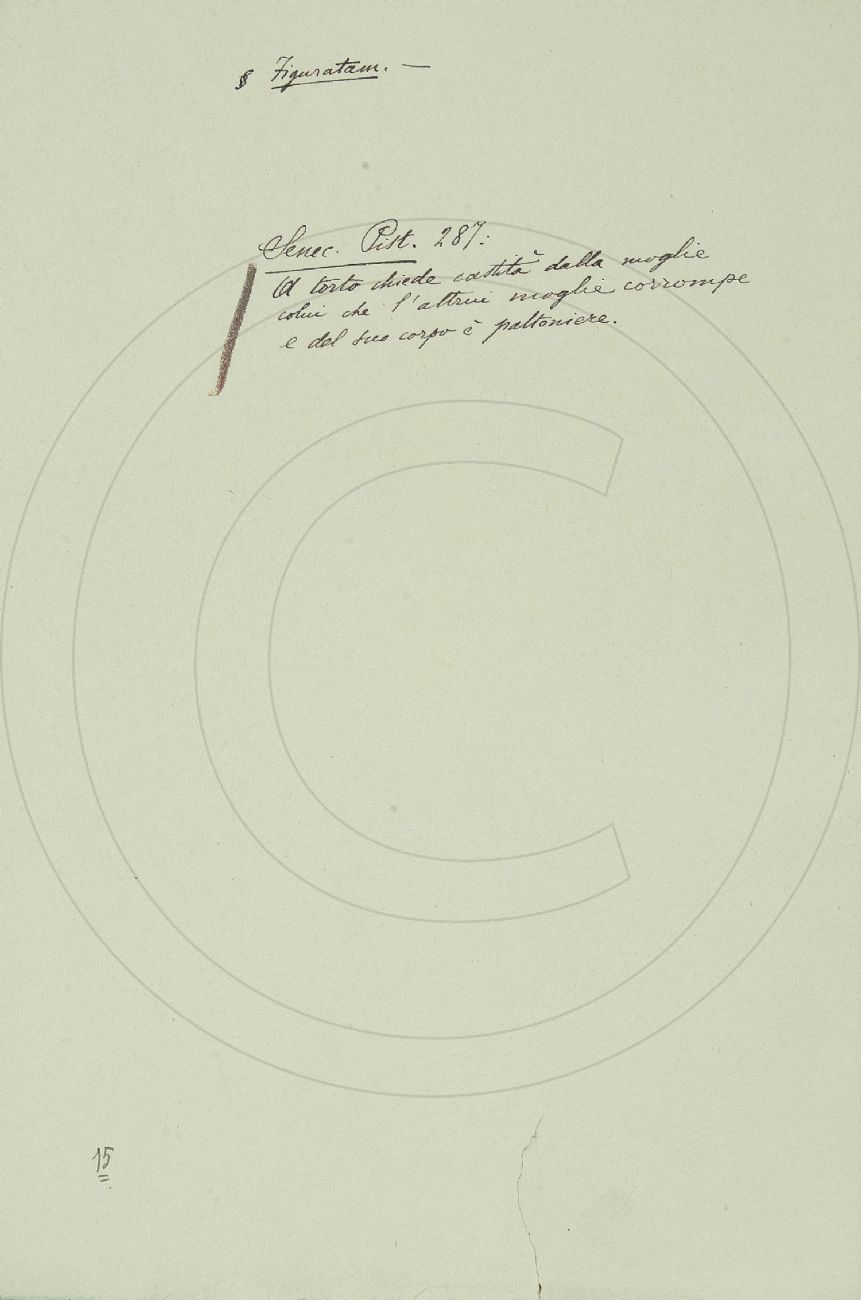 § Figuratam. —
Senec. Pist. 287:
A torto chiede castità dalla moglie
colui che l'altrui moglie corrompe
e del suo corpo è paltoniere.
15